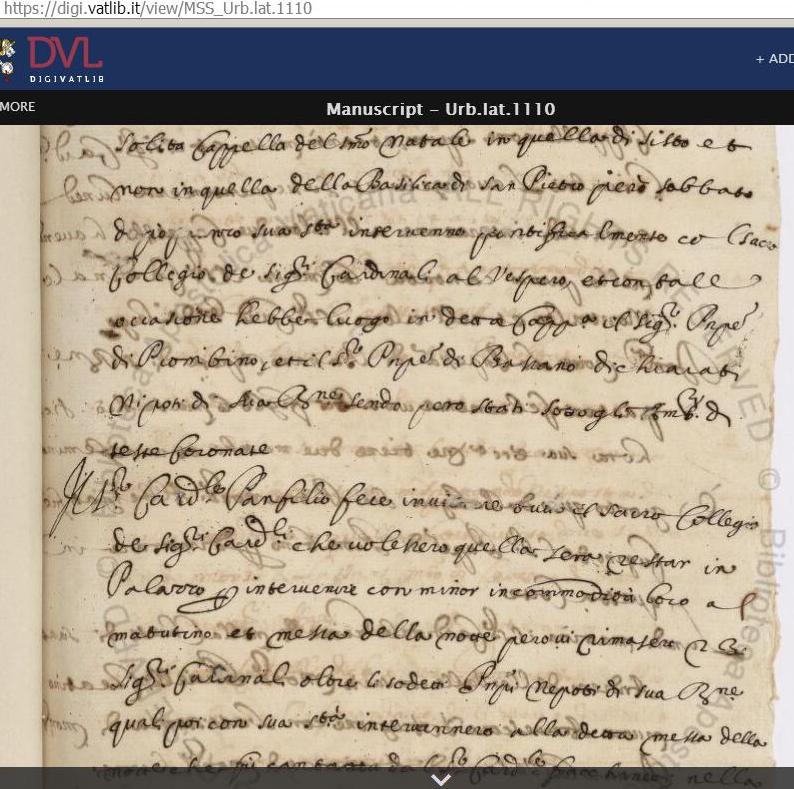 https://digi.vatlib.it/view/MSS_Urb.lat.1110
DVL
DIGIVATLIB
+ ADD
MORE
Manuscript – Urb.lat.1110
solita Cappella del smo Natale in quella di sisto et
non in quella della Basilica di san Pietro però sabbato
sua stà intervenne pontificalmente co l sacro
Collegio de sigri Cardinali al Vespero, et con tale
occasione hebbe luogo in detta Cappa il sigr Pnpe
di Piombino, et il sr Pnpe di Bassano dichiarati
Nipoti di sua Bne sendo però stati sotto gli Ambri di
teste Coronate
Il sr Cardle Panfilio fece invitare tutto il sacro Collegio
de sigri Cardli che volessero quella sera restar in
Palazzo intervenire con minor incommodità loro a
matutino et messa della notte però vi rimasero
sigri Cardinali oltre li sodetti Pnpi Nepoti di sua Bne
quali poi con sua stà intervennero alla detta messa della
notte che fù cantata dal sr Cardle nella